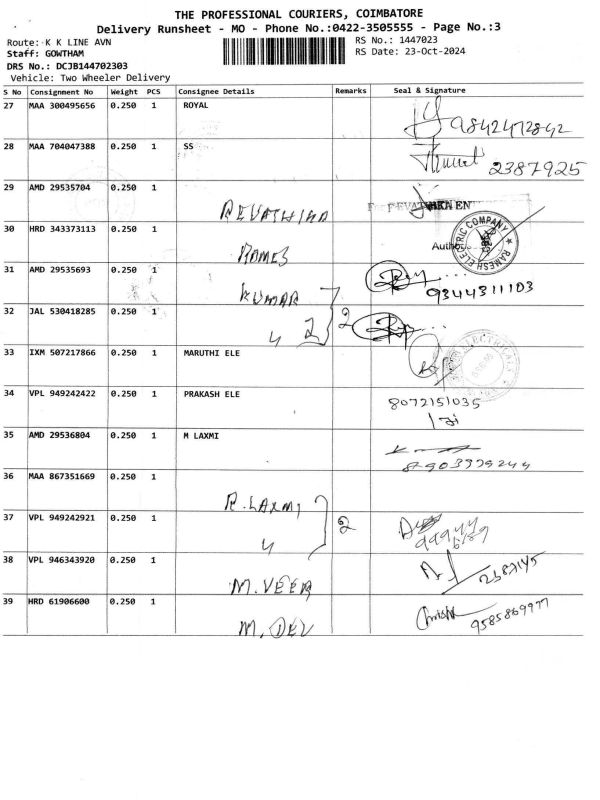 THE PROFESSIONAL COURIERS, COIMBATORE
Delivery Runsheet - MO - Phone No.:0422-3505555 - Page No.:3
Route: K K LINE AVN
RS No.: 1447023
Staff: GOWTHAM
RS Date: 23-Oct-2024
DRS No.: DCJB144702303
Vehicle: Two Wheeler Delivery
S No Consignment No Weight PCS Consignee Details Remarks Seal & Signature
27 MAA 300495656 0.250 1 ROYAL
9842472842
28 MAA 704047388 0.250 1 SS
2387925
29 AMD 29535704 0.250 1
REVATHIRA
30 HRD 343373113 0.250 1 RAMES
RAMESH ELECTRIC COMPANY
31 AMD 29535693 0.250 1 KUMAR
9344311103
32 JAL 530418285 0.250 1 2 2
33 IXM 507217866 0.250 1 MARUTHI ELE
34 VPL 949242422 0.250 1 PRAKASH ELE
8072151035
35 AMD 29536804 0.250 1 M LAXMI
8903979244
36 MAA 867351669 0.250 1 R.LAXMI
37 VPL 949242921 0.250 1 2
99944
38 VPL 946343920 0.250 1 M.VEER
2387145
39 HRD 61906600 0.250 1 M.DEV
9585869977